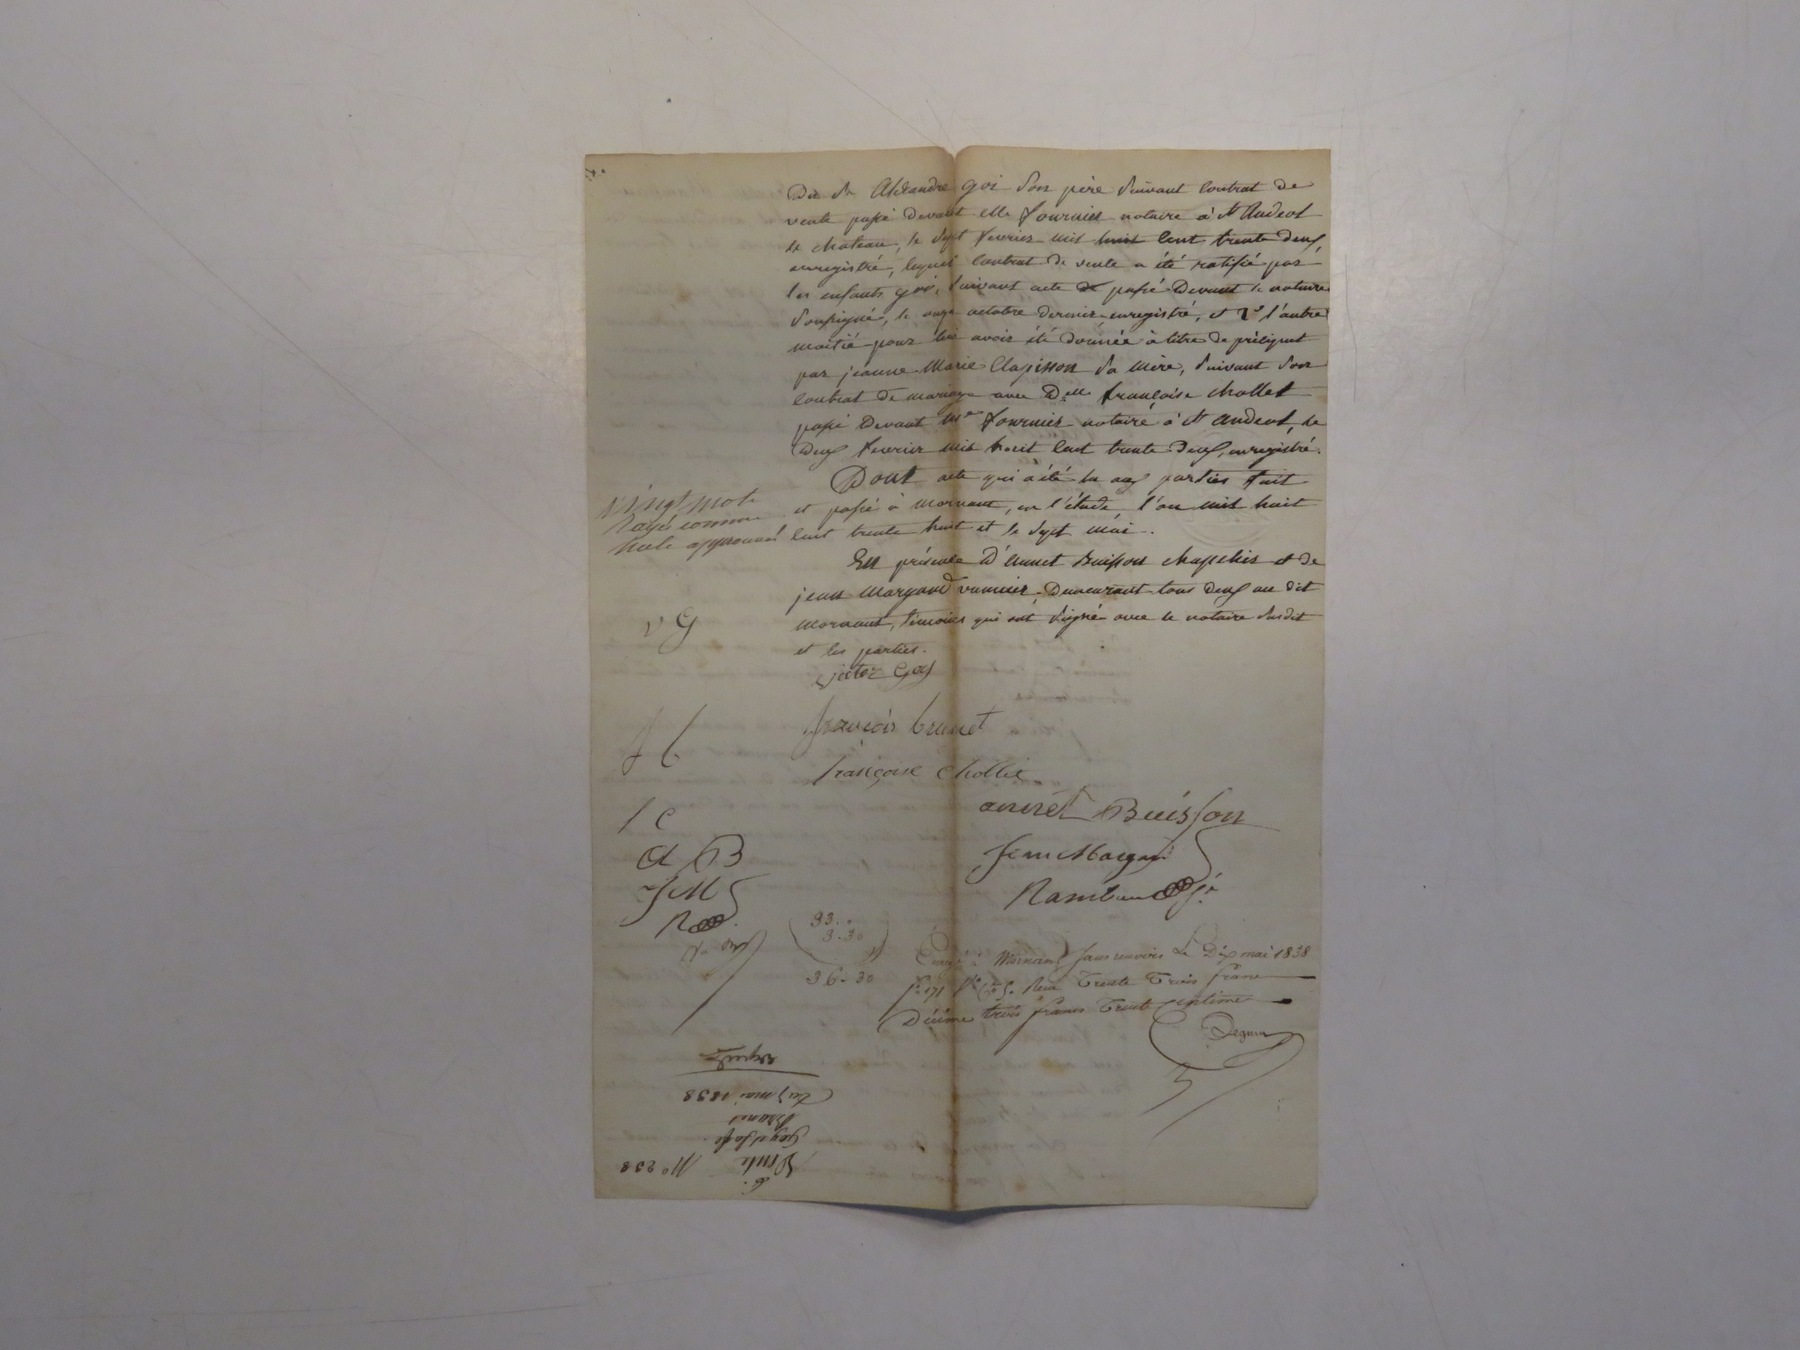 Du Sr Alexandre goi Son père Suivant Contrat de
vente passé Devant Me fournier notaire à St Andeol
le chateau, le Sept fevrier mil huit Cent trente deux,
enregistré, lequel Contrat de vente a été ratifié par
les enfants goi, Suivant acte passé Devant le notaire
Soussigné, le onze octobre dernier enregistré, et 2° l'autre
moitié pour lui avoir été donnée à titre de préciput
par jeanne Marie Clapisson Sa Mère, Suivant Son
Contrat de mariage avec Delle françoise Chollet
passé Devant Me fournier notaire à St andeol, le
Deux fevrier mil huit Cent trente Deux, enregistré.
Dont acte qui a été lu aux parties fait
et passé à mornant, en l'étude, l'an mil huit
Cent trente huit et le Sept mai.
vingt mots
Rayés comme
nuls approuvés
En présence D'annet Buisson chapelier et de
jean Margand vannier, Demeurant tous deux au dit
Mornant, témoins qui ont Signé avec le notaire Susdit
et les parties.
v G
Victor Goy
f b
françois brunet
françoise chollet
f C
annet Buisson
A B
Jean Margand
J M
Rambau
R
33..
3.30
36-30
Mornant sans renvois Le Dix mai 1838
fo 171 Reçu Trente Trois francs
Décime trois francs Trente Centimes
Deguin
No 238
Vente
Goy et sa fe
Brunet
Du 7 mai 1838